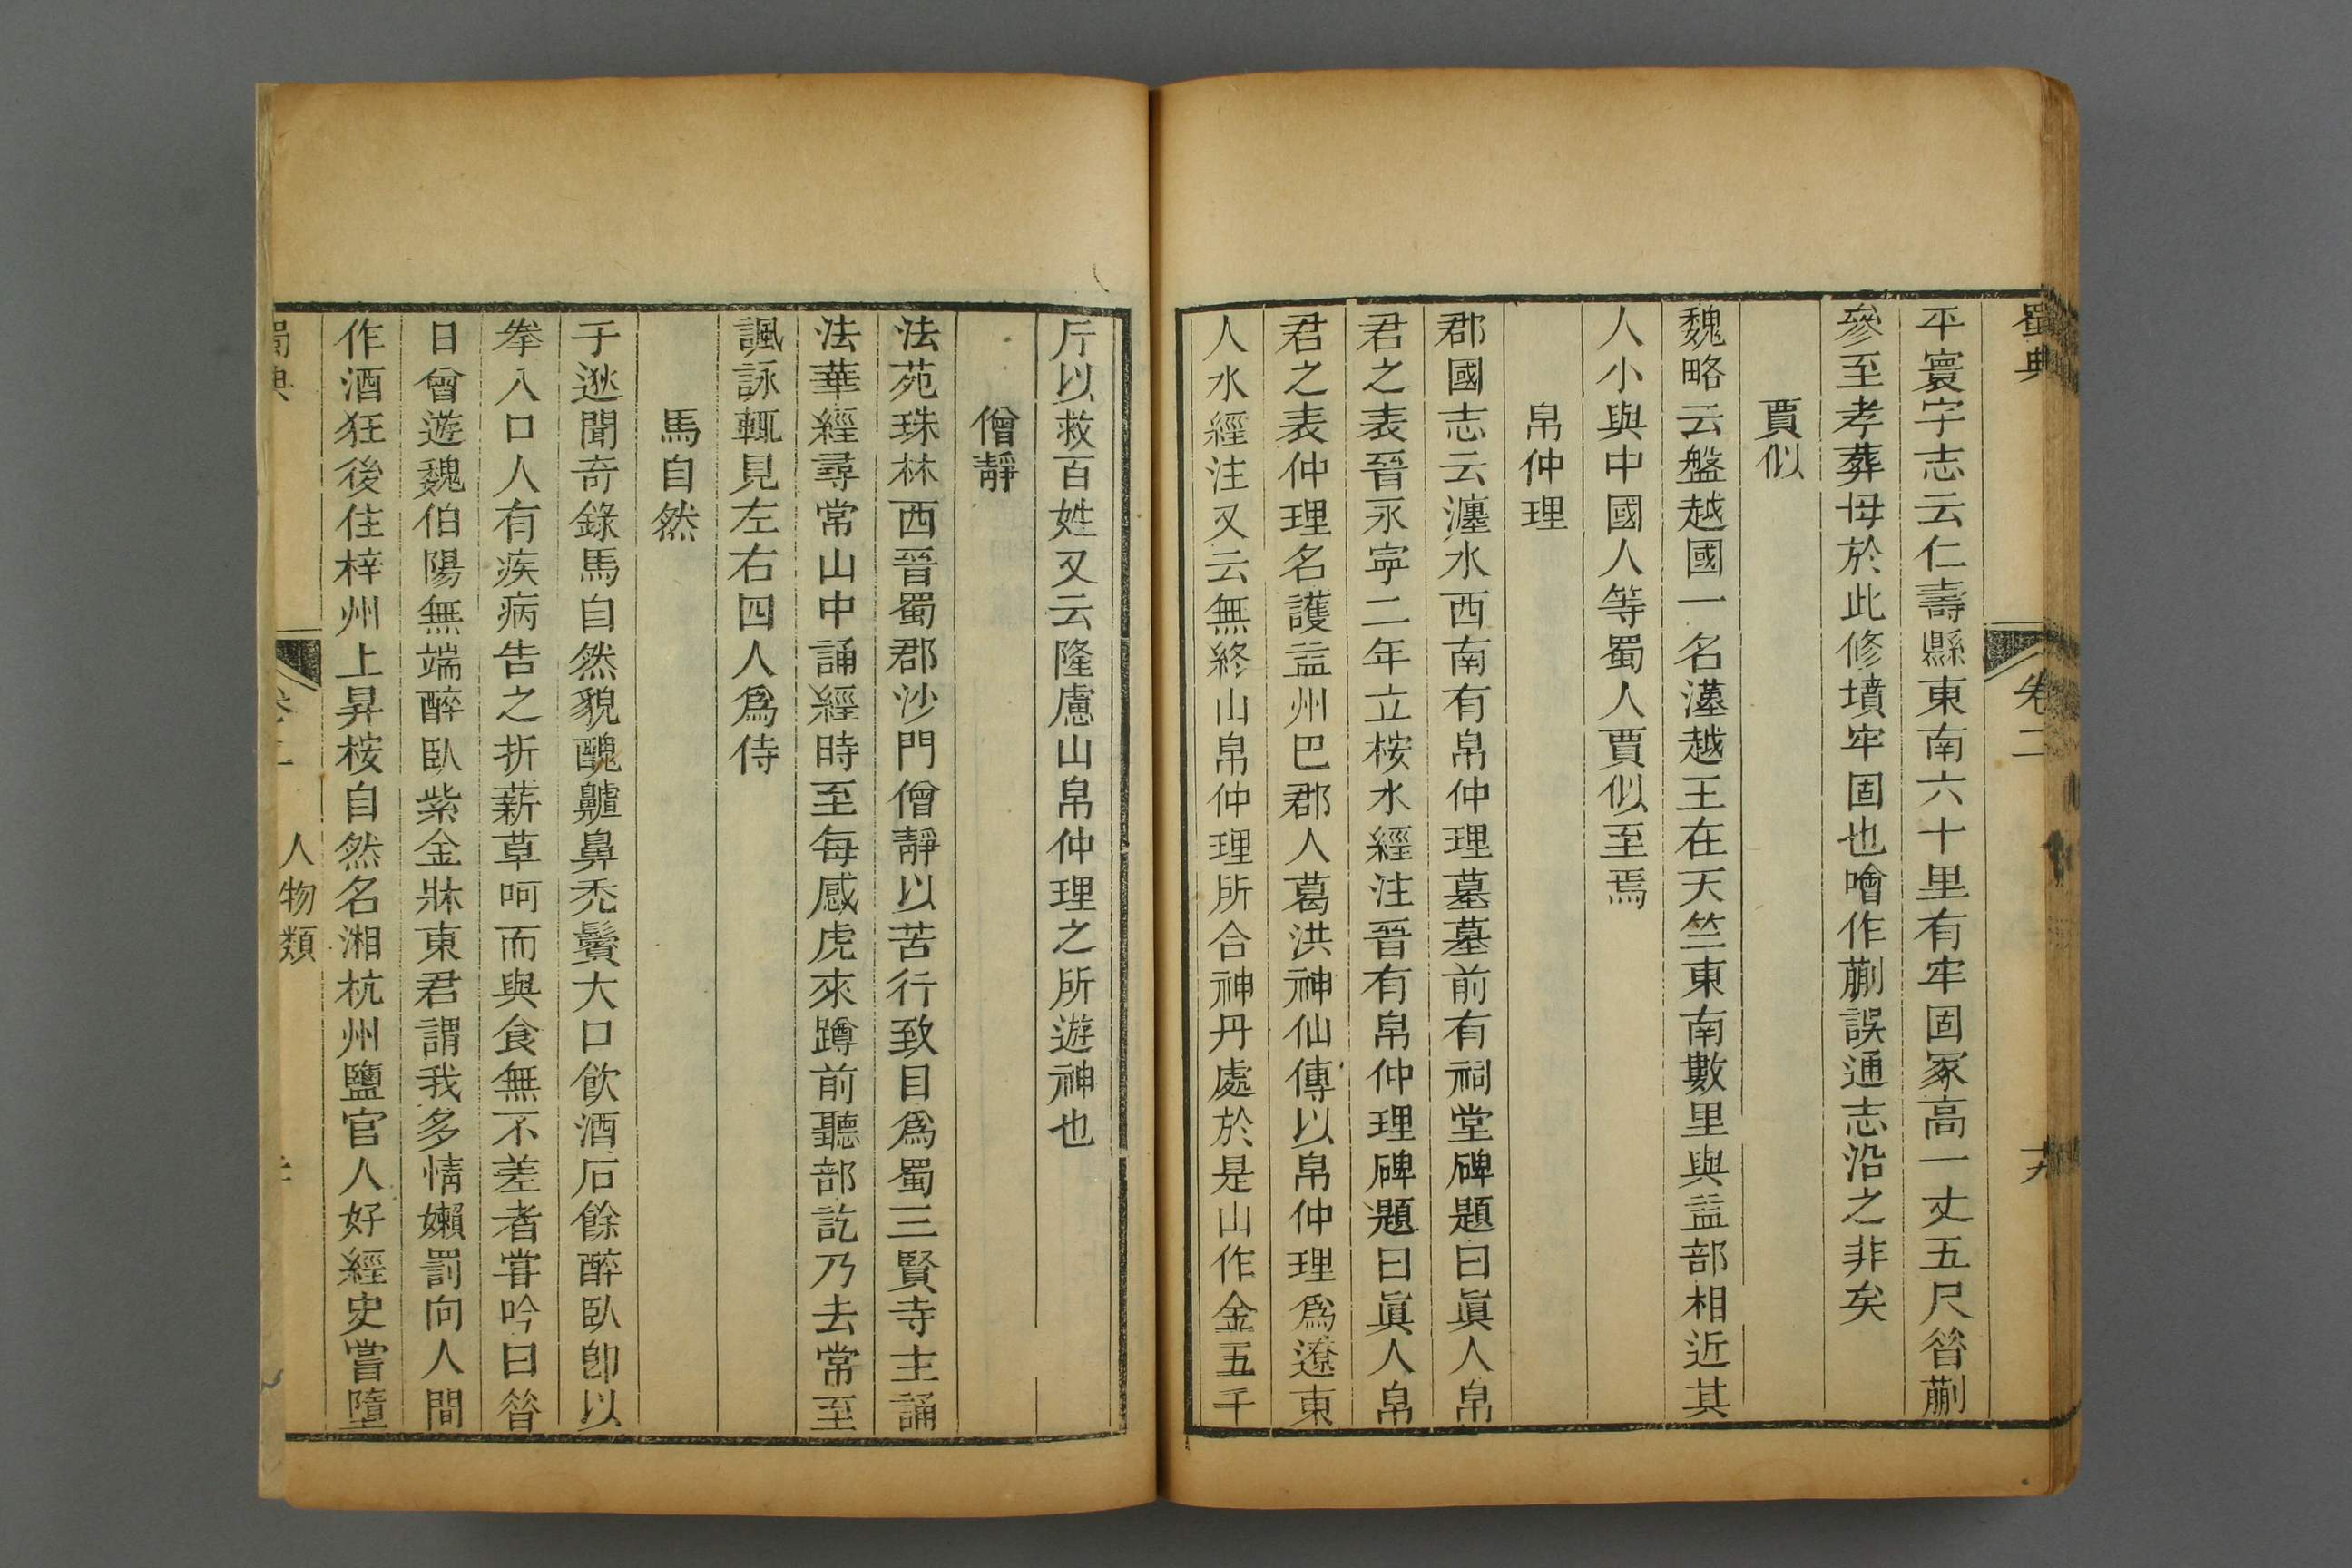 蜀典
卷二
十九
平寰宇志云仁壽縣東南六十里有牢固冢高一丈五尺昝蒯
參至孝葬母於此修墳牢固也噲作蒯誤通志沿之非矣
賈似
魏略云盤越國一名漢越王在天竺東南數里與益部相近其
人小與中國人等蜀人賈似至焉
帛仲理
郡國志云瀍水西南有帛仲理墓墓前有祠堂碑題曰眞人帛
君之表晉永寧二年立桉水經注晉有帛仲理碑題曰眞人帛
君之表仲理名護益州巴郡人葛洪神仙傳以帛仲理爲遼東
人水經注又云無終山帛仲理所合神丹處於是山作金五千
斤以救百姓又云隆慮山帛仲理之所遊神也
僧靜
法苑珠林西晉蜀郡沙門僧靜以苦行致目爲蜀三賢寺主誦
法華經尋常山中誦經時至每感虎來蹲前聽部訖乃去常至
諷詠輒見左右四人爲侍
馬自然
于逖聞奇錄馬自然貌醜齇鼻禿鬢大口飮酒石餘醉臥卽以
拳入口人有疾病告之折薪草呵而與食無不差者甞吟曰昝
日曾遊魏伯陽無端醉臥紫金牀東君謂我多情嬾罰向人間
作酒狂後住梓州上昇桉自然名湘杭州鹽官人好經史嘗墮
蜀典
卷二
人物類